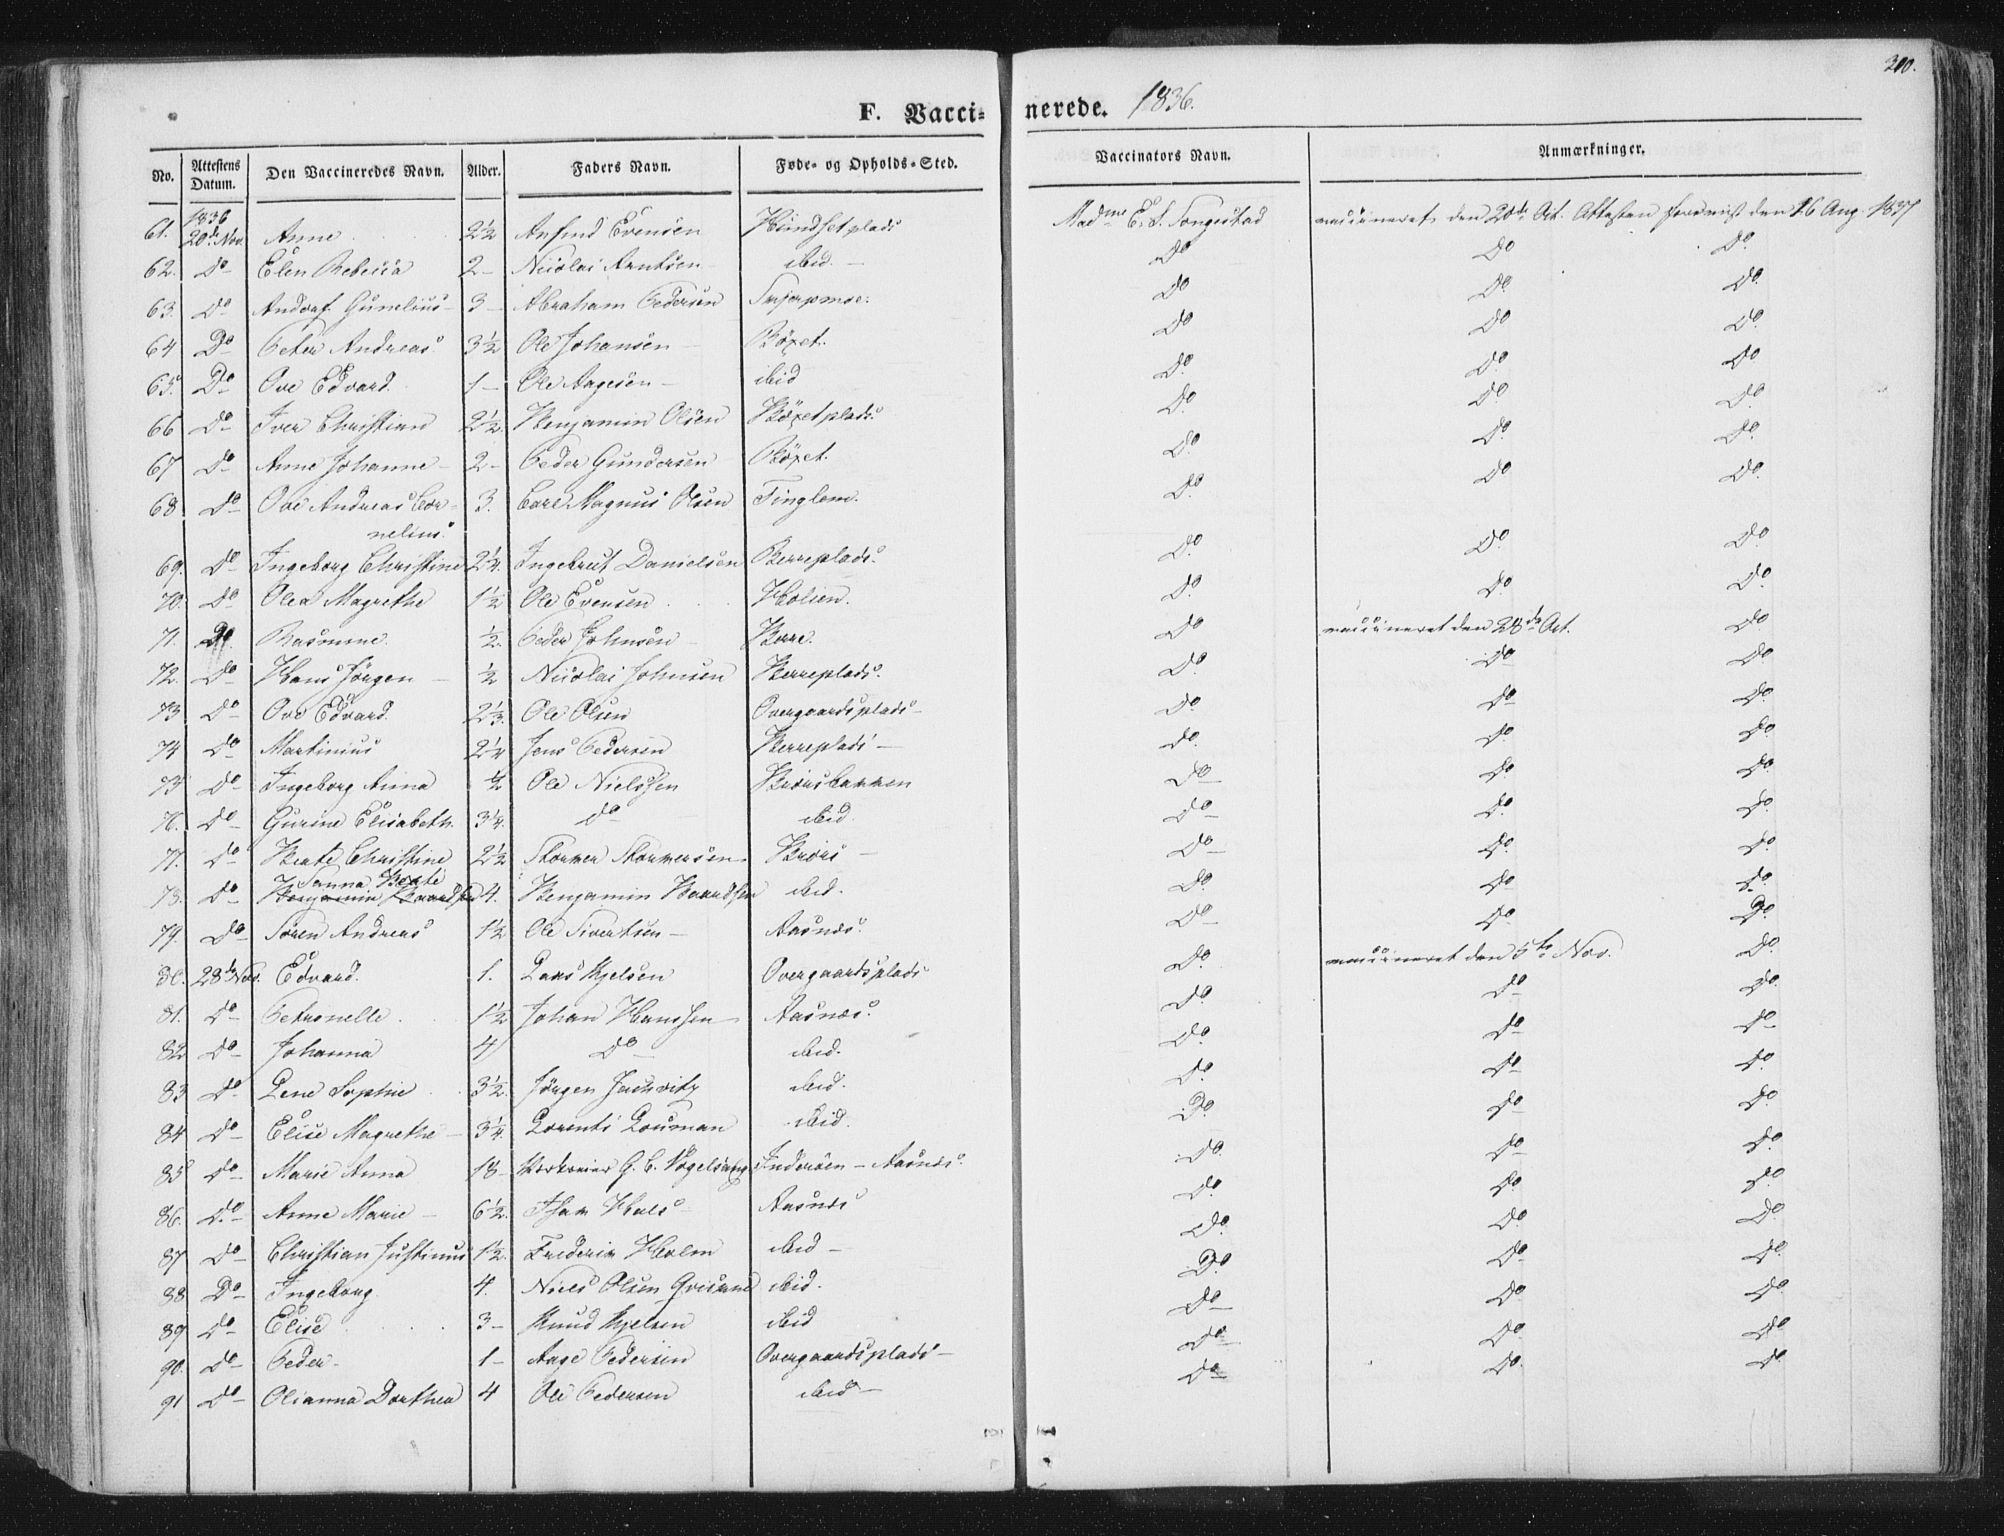 310.
F. Vacci= nerede. 1836.
No. Attestens Datum. Den Vaccineredes Navn. Alder. Faders Navn. Føde- og Opholds-Sted. Vaccinators Navn. Anmærkninger.
1836
61. 20de Nov. Anne 2½ Anfind Evensen Hundsetplads Madme E. S. Songestad vaccineret den 20de Oct. Attesten forevist den 16 Aug. 1837
62. Do Elen Rebecca 2 Nicolai Arntsen ibid. Do Do Do
63. Do Andorf Gunelius 3 Abraham Pedersen Do Do Do
64 Do Peter Andreas 3½ Ole Johansen Böxet. Do Do Do
65. Do Ove Edvard 1 Ole Aagesen ibid Do Do Do
66 Do Iver Christian 2½ Benjamin Olsen Böxetplads Do Do Do
67 Do Anne Johanne 2 Peder Gundersen Böxet. Do Do Do
68 Do Ove Andreas Cor- 3. Carl Magnus Olsen Tinglem. Do Do Do
nelius
69. Do Ingeborg Christine 2¼ Ingebrut Danielsen Berreplads. Do Do Do
70. Do Olea Magrethe 1½ Ole Evensen Holien. Do Do Do
71. Do Rasmine ½ Peder Johnsen Berre. Do vaccineret den 28de Oct. Do
72. Do Hans Jörgen ½ Nicolai Johnsen Berreplads. Do Do Do
73 Do Ove Edvard 2⅓ Ole Olsen Overgaardsplads Do Do Do
74 Do Martinus 2¼ Jens Pedersen Berreplads Do Do Do
75 Do Ingeborg Anna ½ Ole Nielssen Do Do Do
76. Do Gurine Elisabeth 3¼ do ibid Do Do Do
77. Do Berte Christine 2½ Stormer Stormersen Do Do Do
Sanna Berte
78. Do Benjamin Baardsen 4. Benjamin Baardsen ibid. Do Do Do
79. Do Sören Andreas 1½ Ole Sivertsen Aasnæs. Do Do Do
80. 28de Nov. Edvard. 1. Laas Kjelsen Overgaardsplads Do vaccineret den 5te Nov. Do
81. Do Petronelle 1½ Johan Hanssen Aasnæs. Do Do Do
82 Do Johanna 4 Do ibid. Do Do Do
83 Do Lene Sophie 3½ Jörgen ibid. Do Do Do
84 Do Elise Magrethe 3¼ Lorents Louman ibid. Do Do Do
85 Do Marie Anna 18 G. C. Vogelsang Inderöen - Aasnæs. Do Do Do
86. Do Anne Marie 6½ Tham Hals Aasnæs Do Do Do
87 Do Christian Justinus 1½ Frederik Holm ibid Do Do Do
88 Do Ingeborg 4. Niels Olsen ibid. Do Do Do
89 Do Elise 3 Knud Kjelsen ibid Do Do Do
90. Do Peder 1 Aage Pedersen Overgaardsplads Do Do Do
91 Do Olianna Dorthea 4 Ole Pedersen ibid Do Do Do